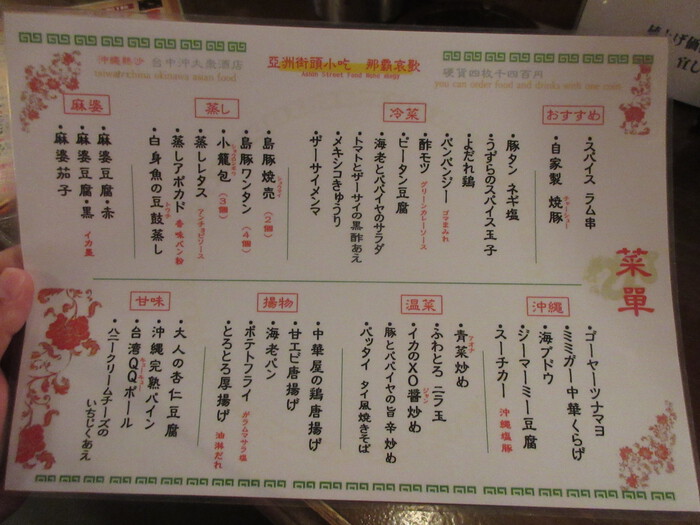 沖縄熱沙 台中沖大衆酒店
亞洲街頭小吃 那覇哀歌
Asian Street Food Naha Elegy
硬貨四枚千四百円
you can order food and drinks with one coin
菜單
おすすめ
・スパイス ラム串
・自家製 焼豚
チャーシュー
冷菜
・豚タン ネギ塩
・うずらのスパイス玉子
・よだれ鶏
・バンバンジー ゴマまみれ
・酢モツ グリーンカレーソース
・ピータン豆腐
・海老とパパイヤのサラダ
・トマトとザーサイの黒酢あえ
・メキシコきゅうり
・ザーサイメンマ
蒸し
・島豚焼売 (2個)
シュウマイ
・島豚ワンタン (4個)
・小籠包 (3個)
ショウロンポウ
・蒸しレタス アンチョビソース
・蒸しアボカド 香味パン粉
・白身魚の豆鼓蒸し
麻婆
・麻婆豆腐・赤
・麻婆豆腐・黒 イカ墨
・麻婆茄子
沖縄
・ゴーヤーツナマヨ
・ミミガー中華くらげ
・海ブドウ
・ジーマーミー豆腐
・スーチカー 沖縄塩豚
温菜
・青菜炒め
アオナ
・ふわとろ ニラ玉
・イカのXO醤炒め
ジャン
・豚とパパイヤの旨辛炒め
・パッタイ タイ風焼きそば
揚物
・中華屋の鶏唐揚げ
・甘エビ唐揚げ
・海老パン
・ポテトフライ ガラムマサラ塩
・とろとろ厚揚げ 油淋だれ
甘味
・大人の杏仁豆腐
・沖縄完熟パイン
・台湾QQボール
キューキュー
・ハニークリームチーズの
いちじくあえ